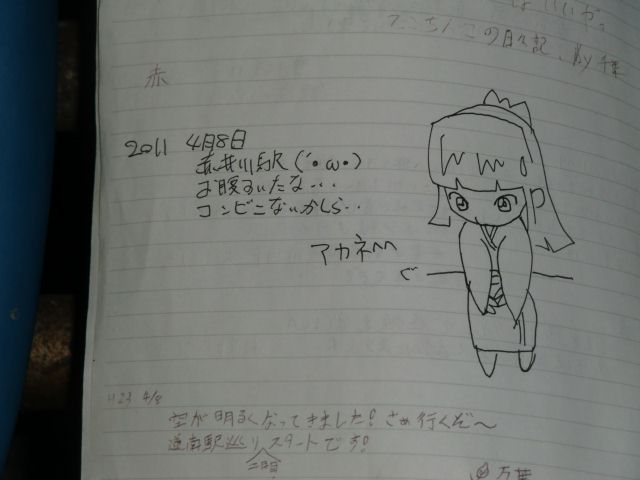 はいいや。
この日々記、
赤
2011 4月8日
赤井川駅(´・ω・)
お腹すいたな...
コンビニないかしら..
アカネ
ぐ
H23 4/8
空が明るくなってきました! さぁ行くぞ〜
道南駅巡りスタートです!
二日目
万葉